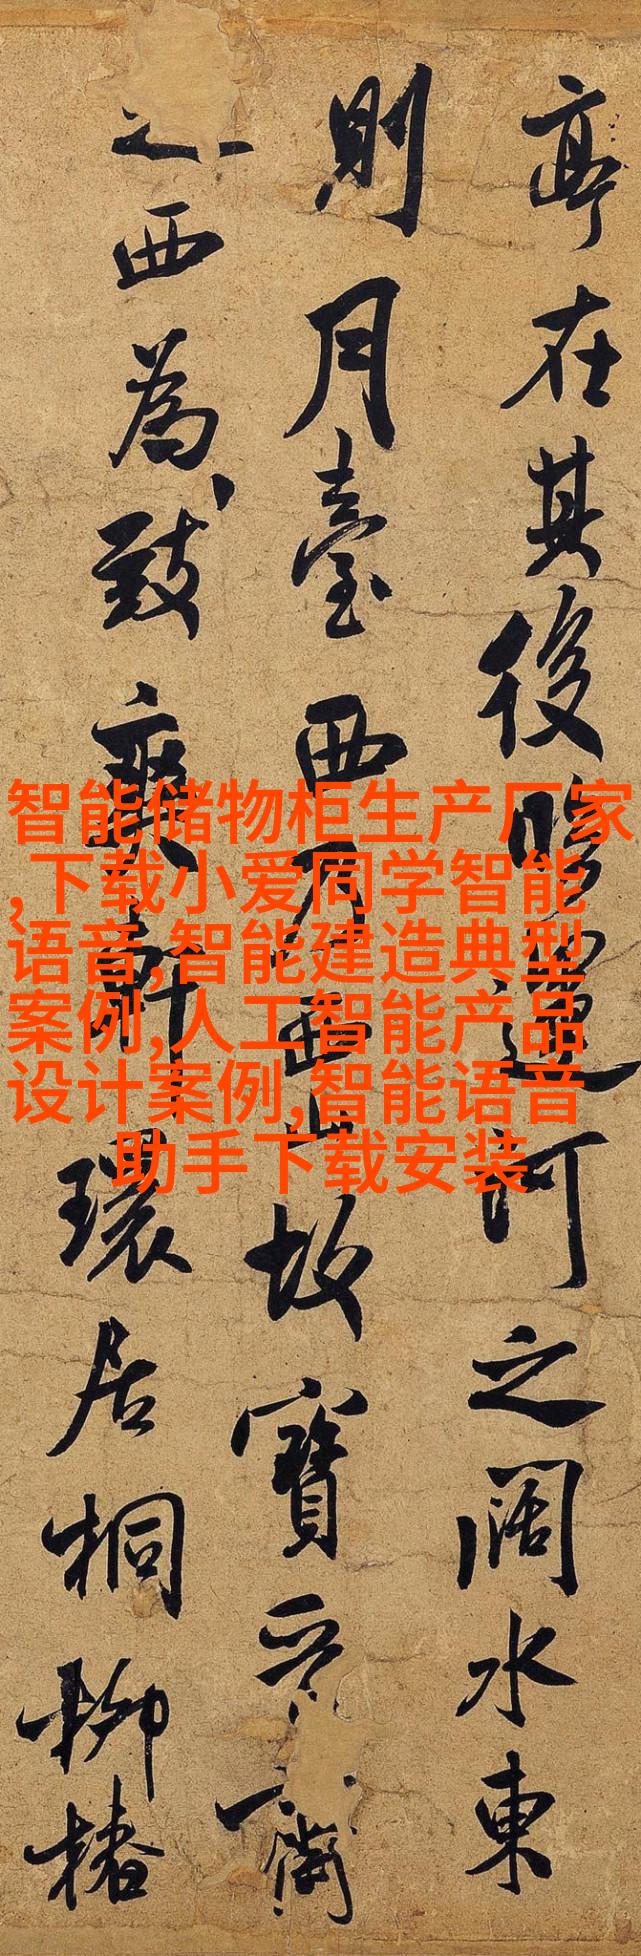 亭在其後臨運河之闊水東
則月臺西乃西山故寶晉齋
之西為致爽軒環居桐柳椿
智能储物柜生产厂家
,下载小爱同学智能
语音,智能建造典型
案例,人工智能产品
设计案例,智能语音
助手下载安装